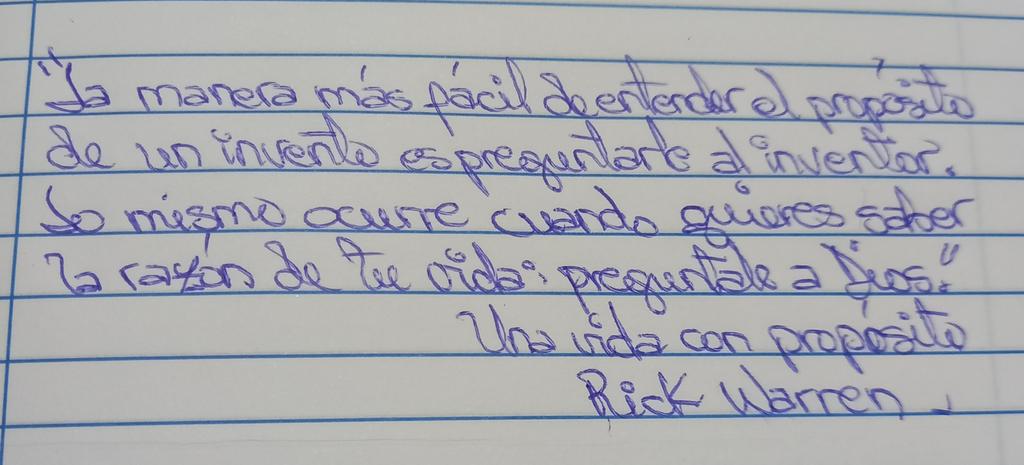 "La manera más fácil de entender el propósito
de un invento es preguntarle al inventor.
Lo mismo ocurre cuando quieres saber
la razón de tu vida: preguntale a Dios."
Una vida con propósito
Rick Warren.